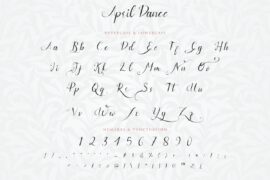 April Dance
UPPERCASE & LOWERCASE
Aa Bb Cc Dd Ee Ff Gg Hh
Ii Jj Kk Ll Mm Nn Oo
Pp Qq Rr Ss Tt Uu
Vv Ww Xx Yy Zz
NUMERALS & PUNCTUATION
1 2 3 4 5 6 7 8 9 0